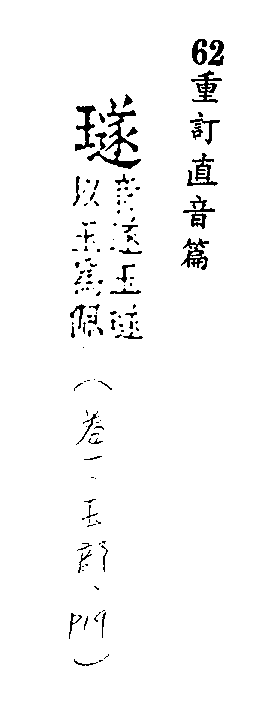 62重訂直音篇
璲音遂玉璲
以玉為佩
（卷一、玉部、P19）